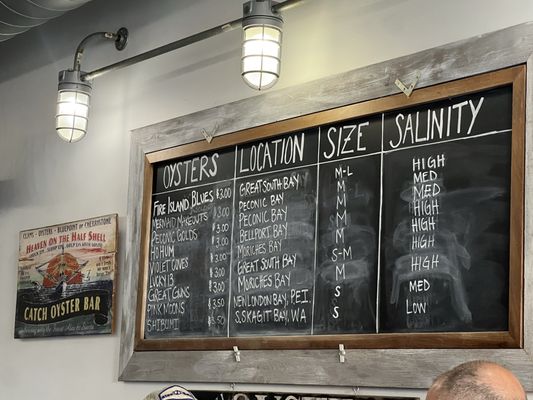 OYSTERS LOCATION SIZE SALINITY
FIRE ISLAND BLUES $3.00 GREAT SOUTH BAY M-L HIGH
MERMAID MAKEOUTS $3.00 PECONIC BAY M MED
PECONIC GOLDS $3.00 PECONIC BAY M MED
HO HUM $3.00 BELLPORT BAY M HIGH
VIOLET COVES $3.00 MORICHES BAY M HIGH
LUCKY 13 $3.00 GREAT SOUTH BAY S-M HIGH
GREAT GUNS $3.50 MORICHES BAY M HIGH
PINK MOONS 3.50 NEW LONDON BAY, P.E.I. S MED
SHIBUMI 3.50 S. SKAGIT BAY, WA S LOW
CLAMS - OYSTERS - BLUEPOINT OR CHERRYSTONE
HEAVEN ON THE HALF SHELL
CATCH OYSTER BAR